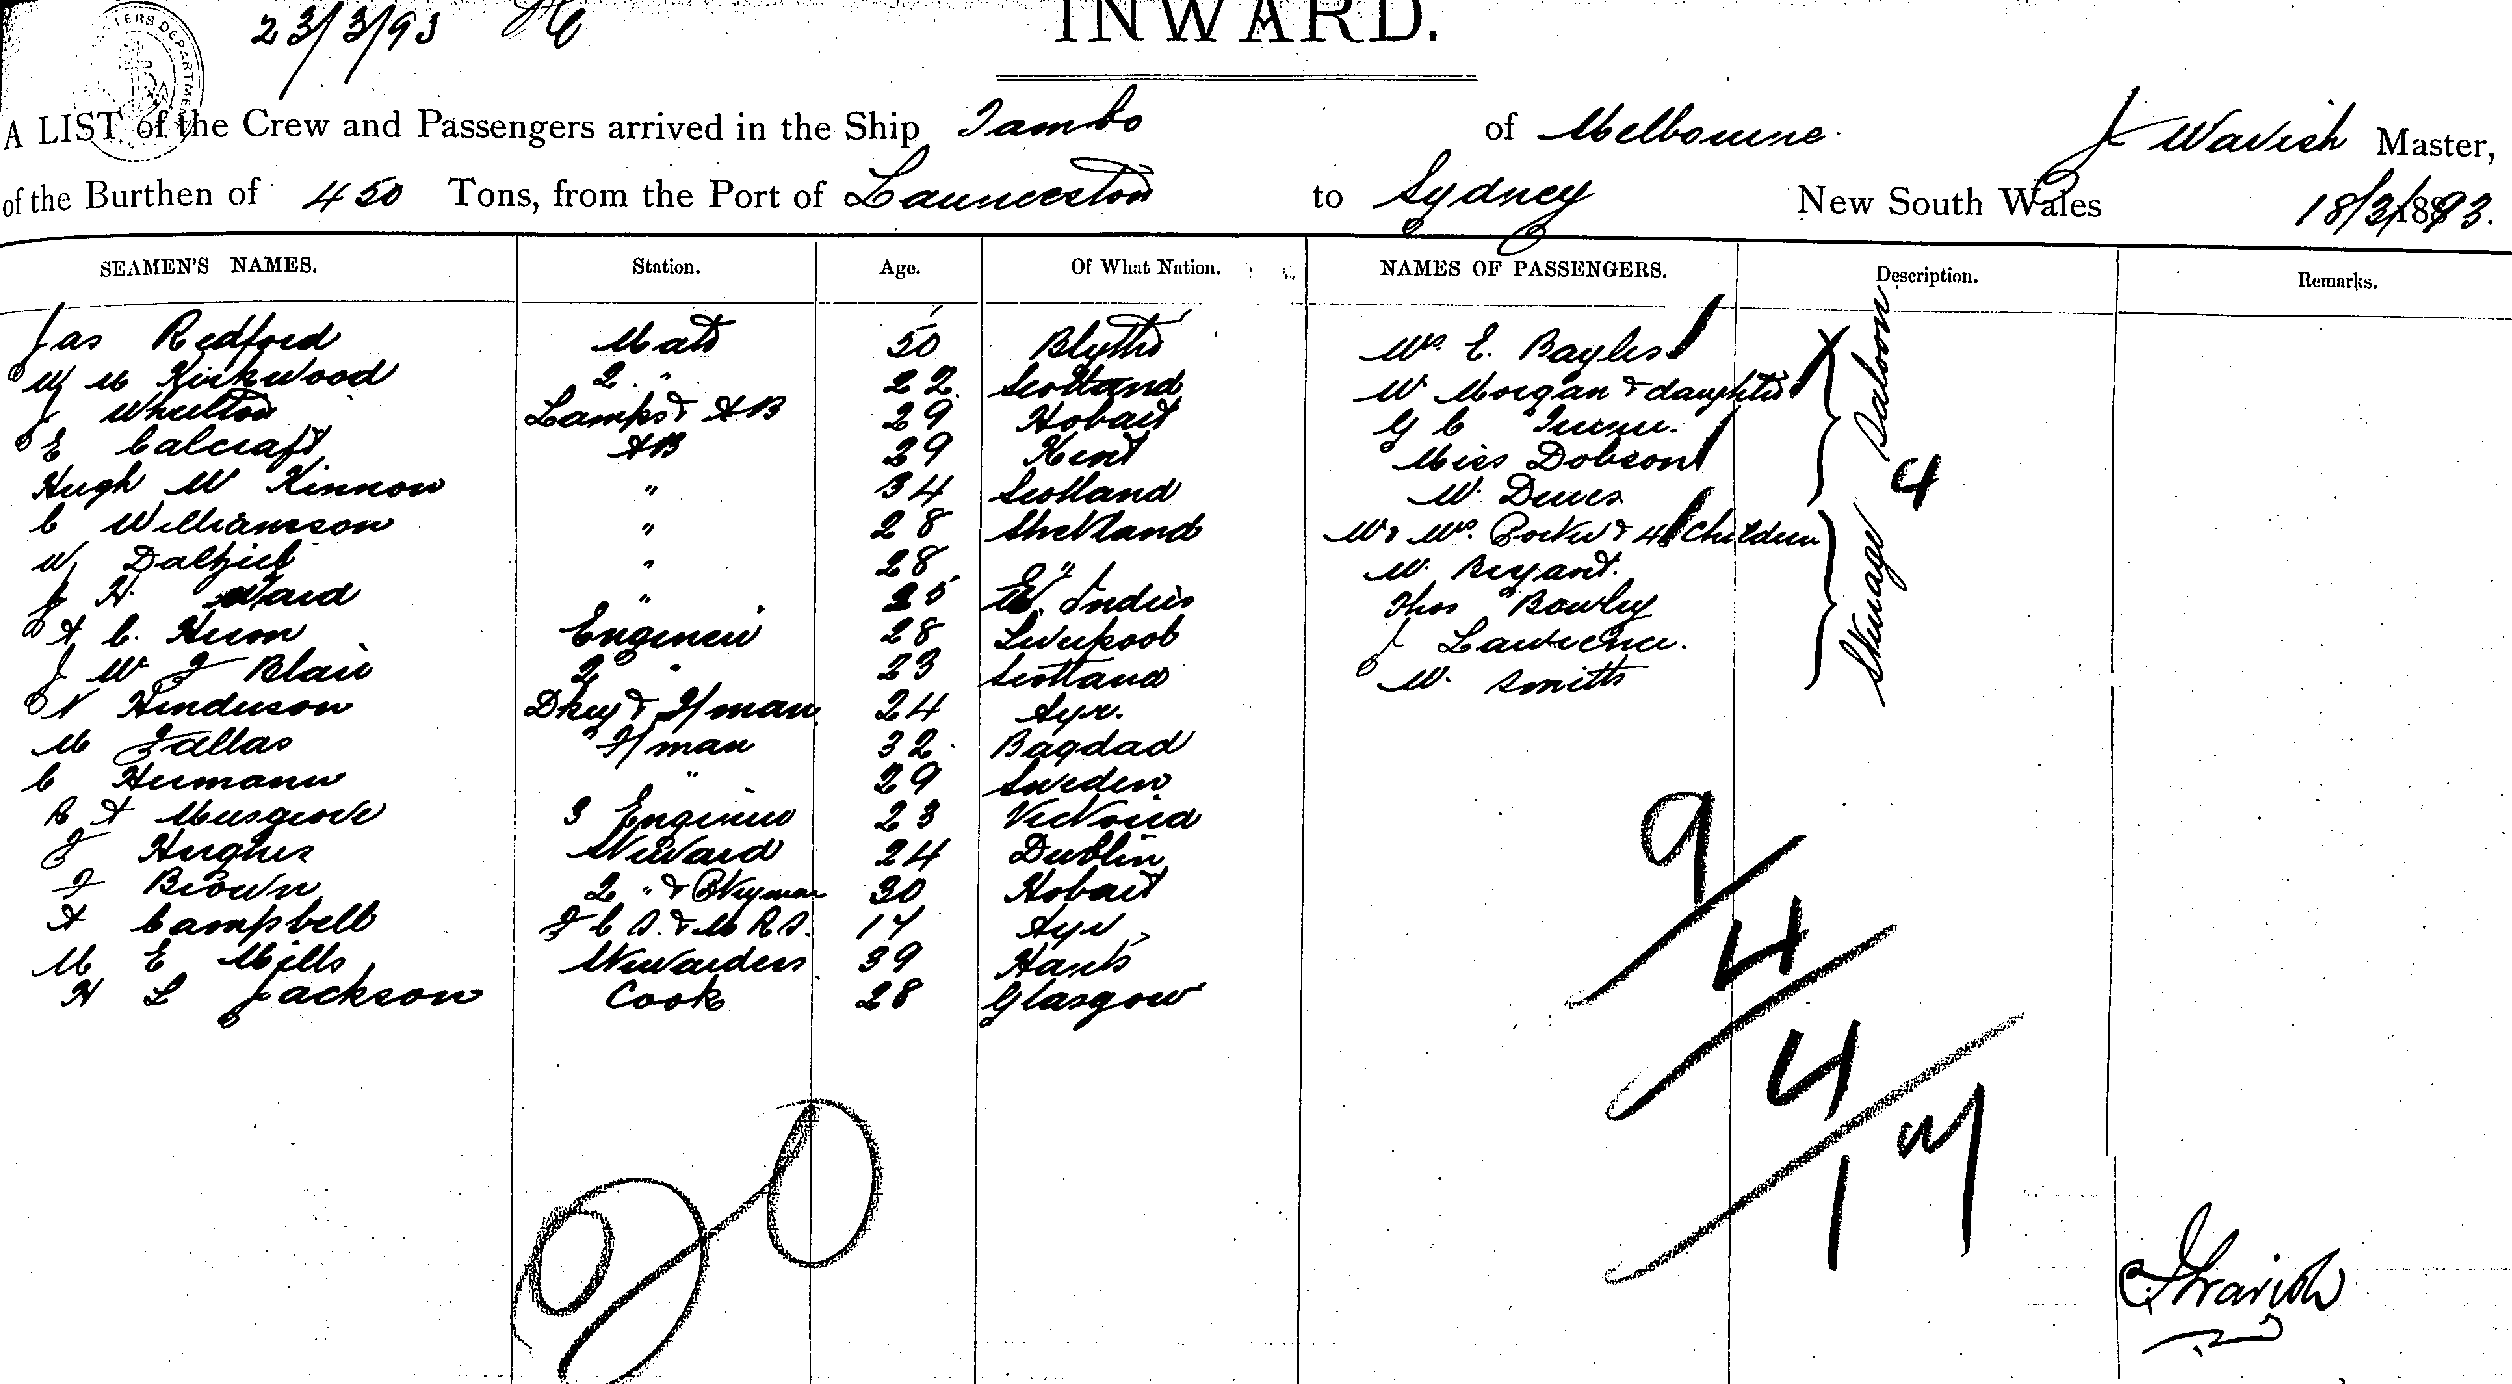 23/3/93
INWARD.
A LIST of the Crew and Passengers arrived in the Ship Tambo of Melbourne. J Wavish Master,
of the Burthen of 450 Tons, from the Port of Launceston to Sydney New South Wales 18/3/1893.
SEAMEN'S NAMES. Station. Age. Of What Nation. NAMES OF PASSENGERS. Description. Remarks.
Jas Redford Mate 50 Blyth Mrs. E. Bayles Saloon
W M Kirkwood 2. " 22 Scotland Mr Morgan & daughter
J Wheelton Lamps & AB 29 Hobart G C Turner.
E Calcraft AB 29 Kent Miss Dobson
Hugh Mc Kinnon " 34 Scotland Mr. Dewes 4
C Williamson " 28 Shetland Mr & Mrs. & 4 Children Steerage
W Dalziel " 28 " Mr. Bryant.
J H Ward " 25 W. Indies Thos Bowley
A C. Heron Engineer 28 Liverpool J Lawrence.
J W F Blair 2 " 23 Scotland W. Smith
N Henderson Dkey & F/man 24 Ayr.
M Fallas F/man 32 Bagdad
C Hermann " 29 Sweden
R A Musgrove 3 Engineer 23 Victoria
J Hughes Steward 24 Dublin
F Brown 2 " & Ptryman 30 Hobart
A Campbell F C S. & M R S. 17 Ayr
M E Mills Stewardess 39 Hants
H L Jackson Cook 28 Glasgow
9/4/4/17
20
J Wavish